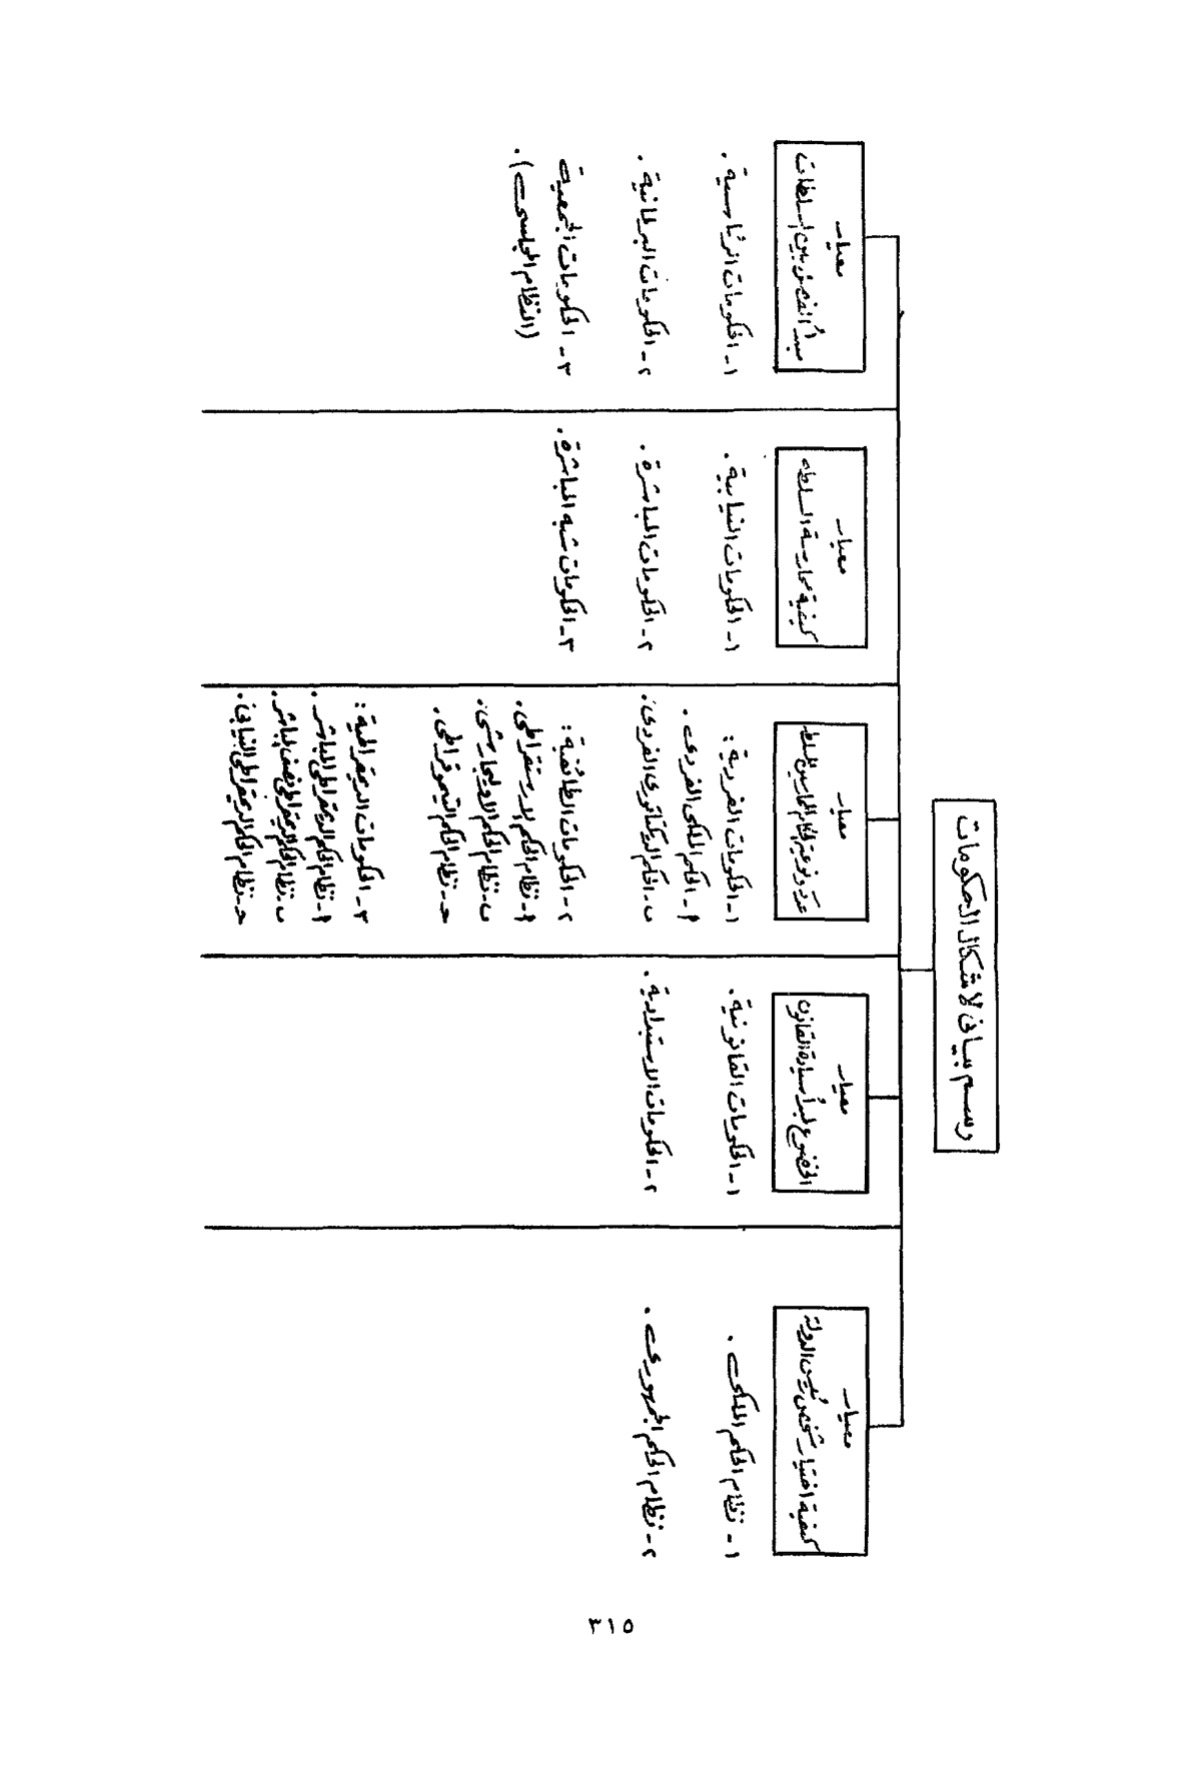 رسم بياني لاشكال الحكومات
معيار
كيفية اختيار شخص رئيس الدولة
١ - نظام الحكم الملكى .
٢ - نظام الحكم الجمهورى .
معيار
الخضوع لمبدأ سيادة القانون
١ - الحكومات القانونية .
٢ - الحكومات الاستبدادية .
معيار
عدد ونوعية الحكام الممارسين للسلطة
١ - الحكومات الفردية :
أ - الحكم الملكى الفردى .
ب - الحكم الديكتاتورى الفردى .
٢ - الحكومات الطائفية :
أ - نظام الحكم الارستقراطى .
ب - نظام الحكم الاوليجارشى .
جـ - نظام الحكم التيموقراطى .
٣ - الحكومات الديمقراطية :
أ - نظام الحكم الديمقراطى المباشر .
ب - نظام الحكم الديمقراطى نصف المباشر .
جـ - نظام الحكم الديمقراطى النيابى .
معيار
كيفية ممارسة السلطة
١ - الحكومات النيابية .
٢ - الحكومات المباشرة .
٣ - الحكومات شبه المباشرة .
معيار
مبدأ الفصل بين السلطات
١ - الحكومات الرئاسية .
٢ - الحكومات البرلمانية .
٣ - الحكومات الجمعية
(النظام المجلسى) .
٣١٥